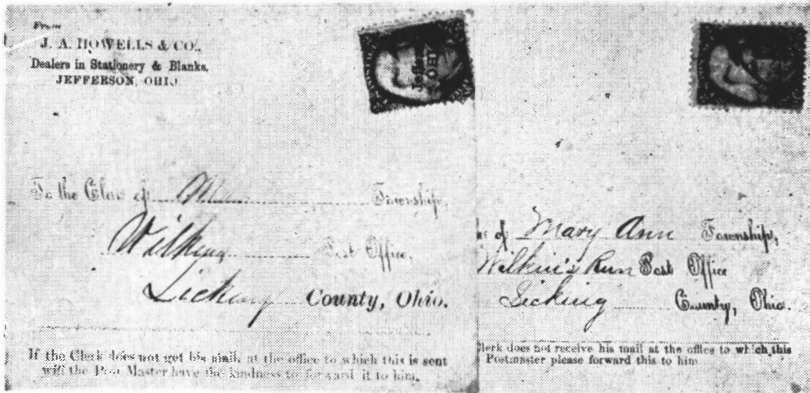 From
J. A. HOWELLS & CO.,
Dealers in Stationery & Blanks,
JEFFERSON, OHIO.
To the Clerk of M Township,
Wilkins Post Office,
Licking County, Ohio.
If the Clerk does not get his mail at the office to which this is sent
will the Post Master have the kindness to forward it to him.
of Mary Ann Township,
Wilkin's Run Post Office
Licking County, Ohio.
Clerk does not receive his mail at the office to which this
Postmaster please forward this to him